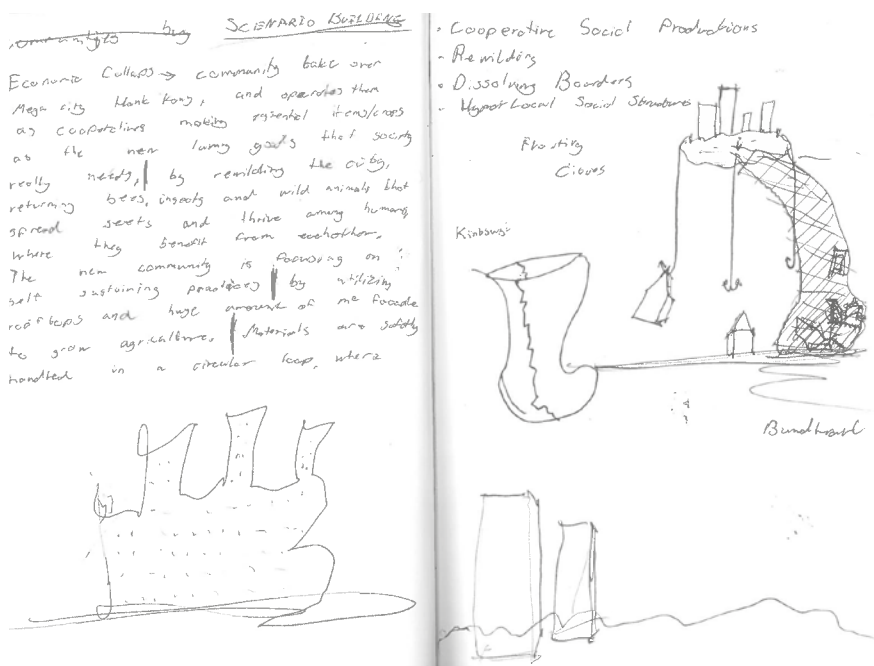 SCENARIO BUILDING
Communities buy
Economic Collaps → community take over
Mega city Honk Kong, and operates them
as cooperatives making essential items/crops
as the new luxury goods that society
really needs, by rewilding the city,
returning bees, insects and wild animals that
spread seeds and thrive among humans,
where they benefit from eachother.
The new community is focusing on
self sustaining practices by utilizing
rooftops and huge amount of the facade
to grow agriculture. Materials are safely
handled in a circular loop, where
• Cooperative Social Productions
• Rewilding
• Dissolving Boarders
• Hyper Local Social Structures
Floating
Kintsugi